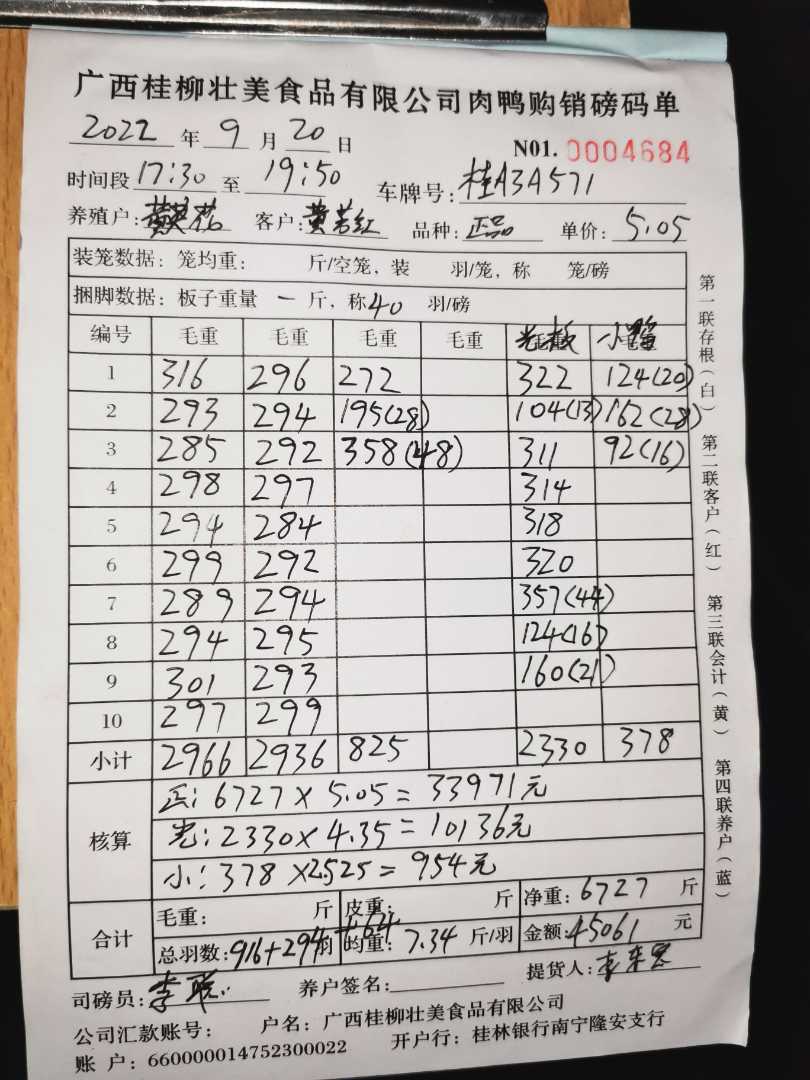 广西桂柳壮美食品有限公司肉鸭购销磅码单
2022 年 9 月 20 日 N01. 0004684
时间段 17:30 至 19:50 车牌号: 桂A3A571
养殖户: 客户: 黄若红 品种: 正品 单价: 5.05
装笼数据: 笼均重: 斤/空笼, 装 羽/笼, 称 笼/磅
捆脚数据: 板子重量 一 斤, 称 40 羽/磅
编号 毛重 毛重 毛重 毛重 光板 小
1 316 296 272 322 124(20)
2 293 294 195(28) 104(13) 162(28)
3 285 292 358(48) 311 92(16)
4 298 297 314
5 294 284 318
6 299 292 320
7 289 294 357(44)
8 294 295 124(16)
9 301 293 160(21)
10 297 299
小计 2966 2936 825 2330 378
核算
正: 6727 × 5.05 = 33971元
光: 2330 × 4.35 = 10136元
小: 378 × 2.525 = 954元
合计
毛重: 斤 皮重: 斤 净重: 6727 斤
总羽数: 916+294+64 羽 均重: 7.34 斤/羽 金额: 45061 元
司磅员: 李 养户签名: 提货人: 李
公司汇款账号: 户名: 广西桂柳壮美食品有限公司
账 户: 660000014752300022 开户行: 桂林银行南宁隆安支行
第一联存根(白) 第二联客户(红) 第三联会计(黄) 第四联养户(蓝)